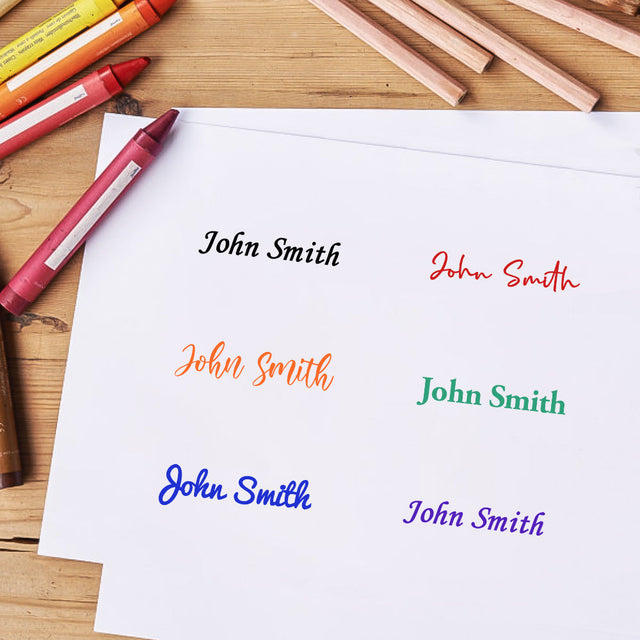 John Smith John Smith
John Smith John Smith
John Smith John Smith